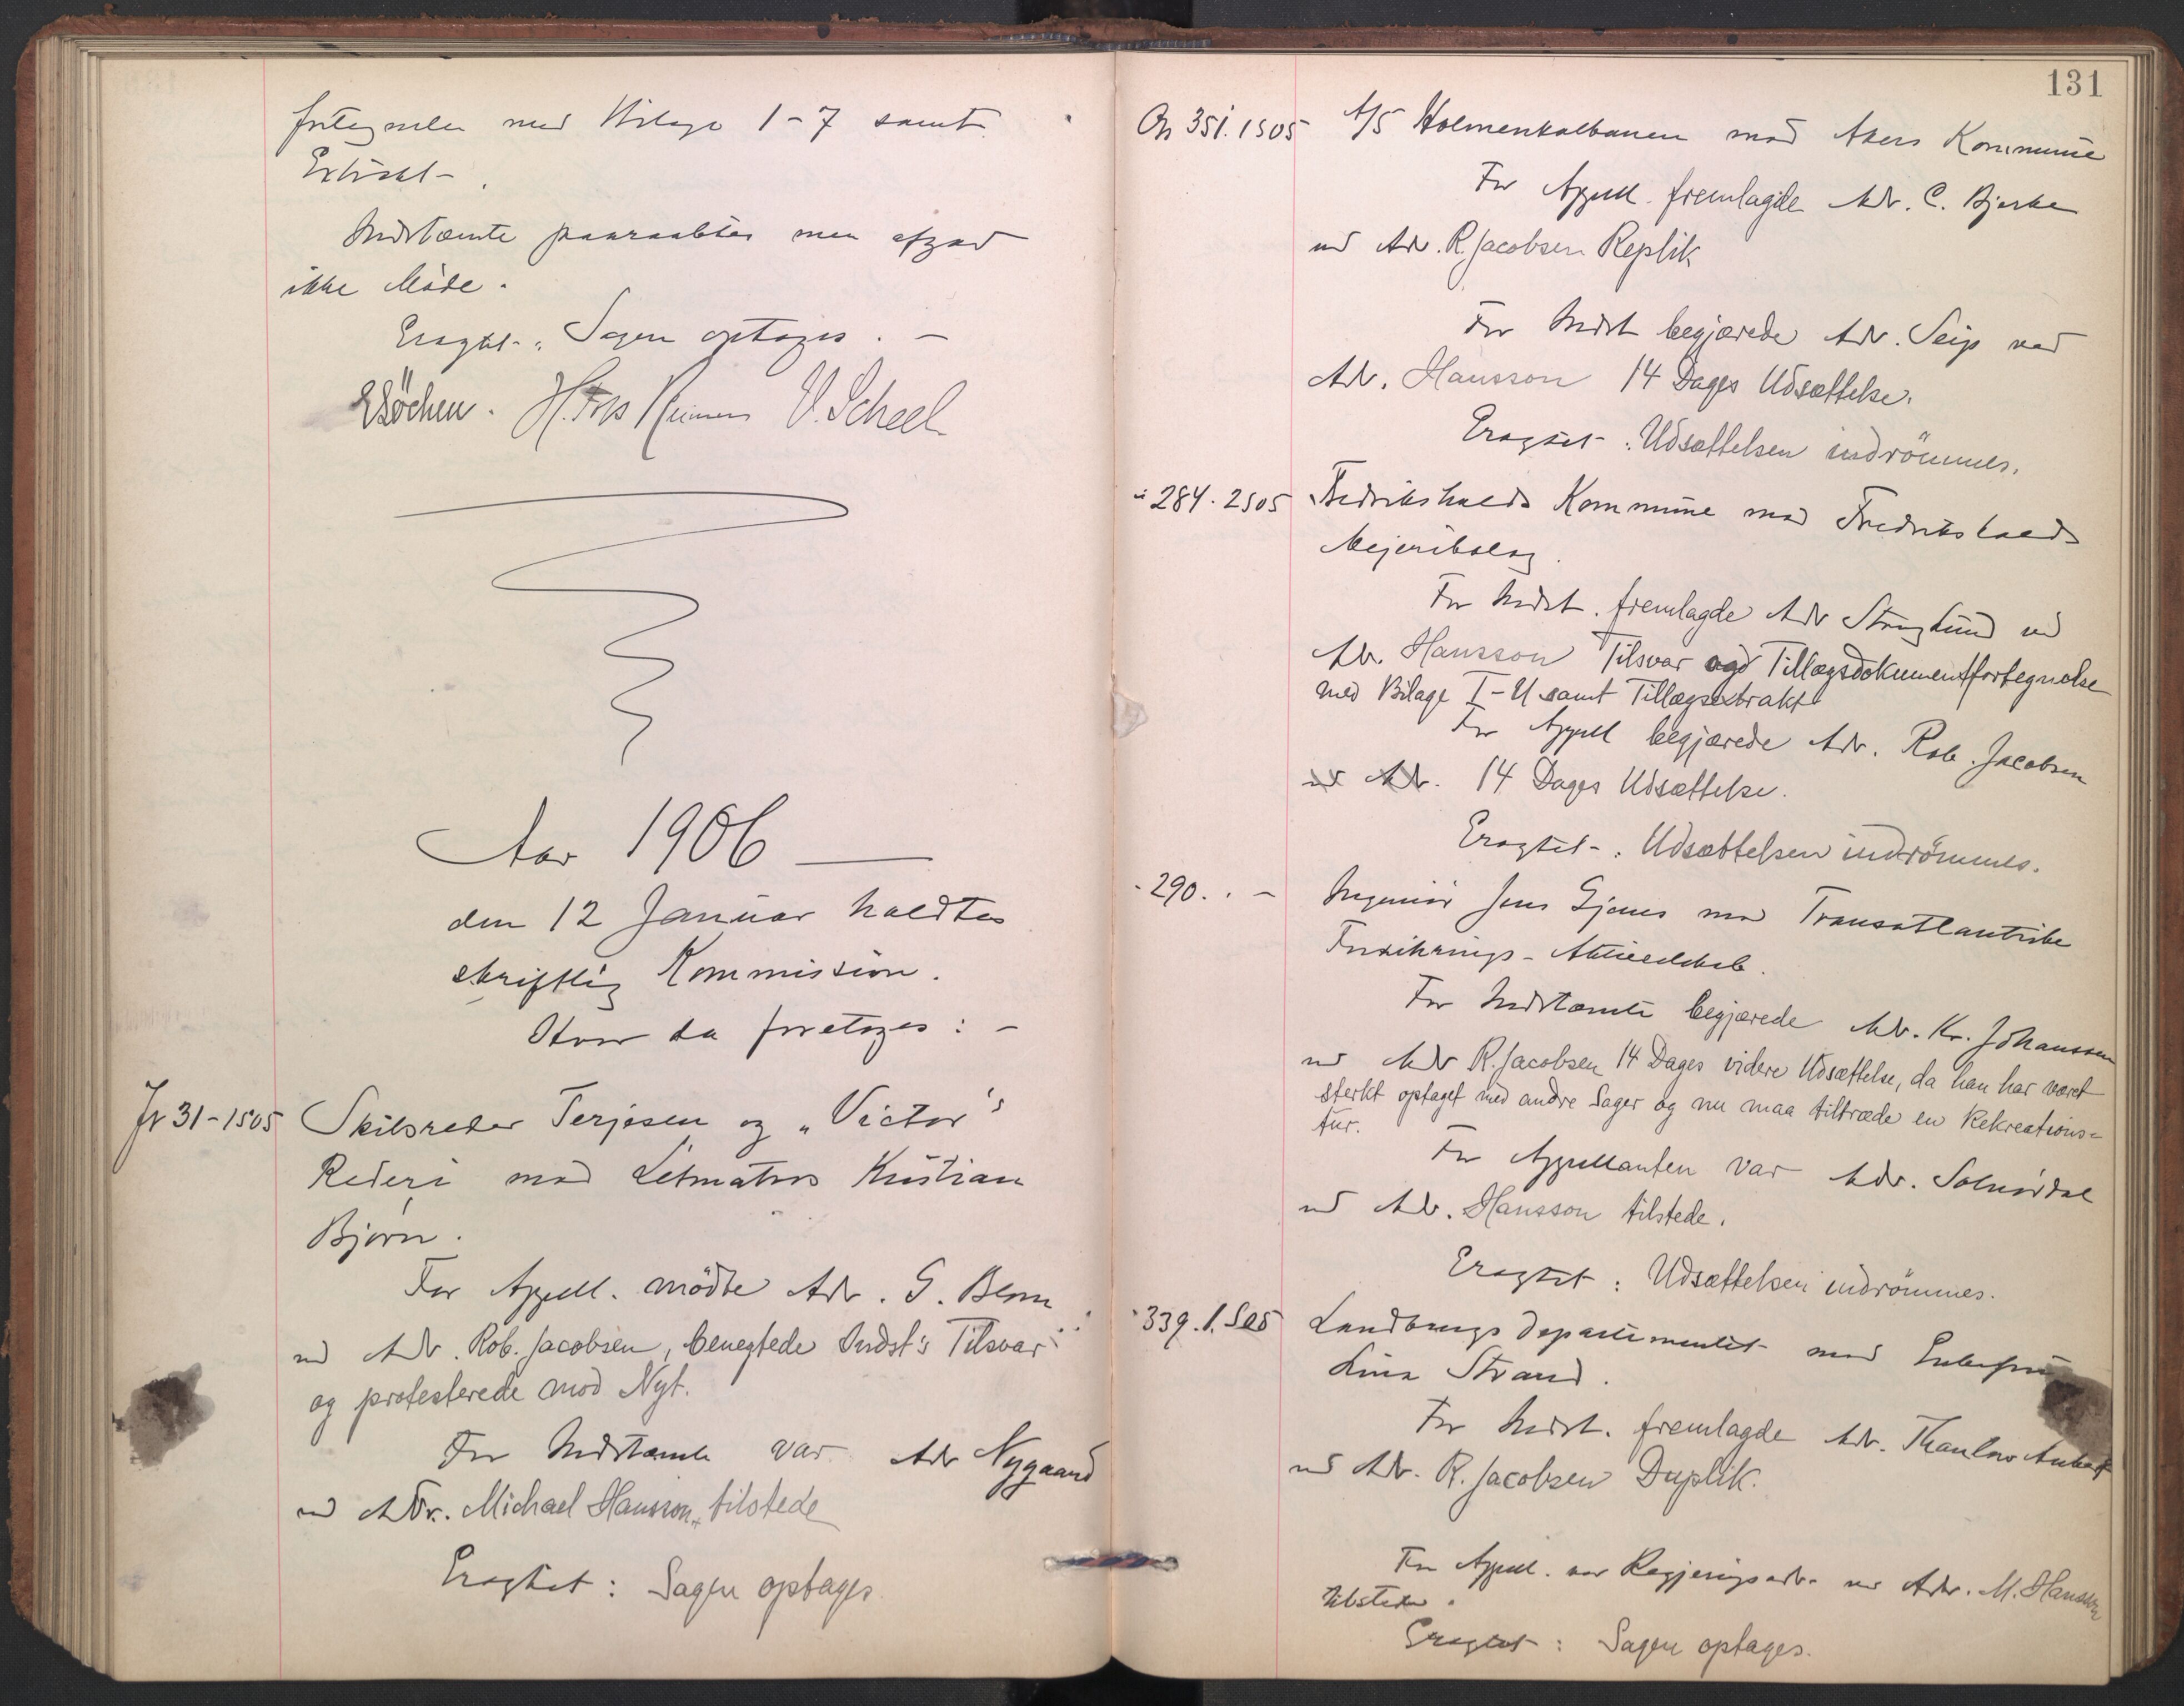 fortegnelse med Bilage 1-7 samt
Extrakt.
Indstævnte paaraabtes men afgav
ikke Møde.
Eragtet: Sagen optages. -
V. Scheel
Aar 1906
den 12 Januar holdtes
skriftlig Kommission.
Hvor da foretoges: -
Nr 31-1 S 05 Skibsreder Terjesen og "Victor"s
Rederi mod Letmatros Kristian
Bjørn.
For Appell. mödte Adv. G. Blom
ved Adv. Rob. Jacobsen, benegtede Indst's Tilsvar
og protesterede mod Nyt.
For Indstævnte var Adv Nygaard
ved Adv. Michael Hansson, tilstede
Eragtet: Sagen optages.
131
On 351. 1 S 05 A/S Holmenkolbanen mod Akers Kommune
For Appell. fremlagde Adv. C. Bjerke
ved Adv. R. Jacobsen Replik
For Indst begjærede Adv. Seip ved
Adv. Hansson 14 Dages Udsættelse.
Eragtet: Udsættelsen indrömmes.
" 284. 2 S 05 Fredrikshalds Kommune mod Fredrikshalds
Mejeribolag.
For Indst. fremlagde Adv ved
Adv. Hansson Tilsvar og Tillægsdokumentfortegnelse
med Bilage I-U samt Tillægsextrakt
For Appell begjærede Adv. Rob. Jacobsen
ved Adv. 14 Dages Udsættelse.
Eragtet: Udsættelsen indrömmes.
" 290. " - Ingeniør Jens mod Transatlantiske
Forsikrings-Aktieselskab.
For Indstævnte begjærede Adv. Kr. Johanssen
ved Adv R. Jacobsen 14 Dages videre Udsættelse, da han har været
sterkt optaget med andre Sager og nu maa tiltræde en Rekreations-
tur.
For Appellanten var Adv. Solnørdal
ved Adv. Hansson tilstede.
Eragtet: Udsættelsen indrömmes.
" 339. 1. S 05 Landbrugsdepartementet mod Enkefru
Lina Strand.
For Indst. fremlagde Adv. Thaulow Aubert
ved Adv. R. Jacobsen Duplik.
For Appell. var Regjeringsadv. ved Adv. M. Hansson
tilstede.
Eragtet: Sagen optages.